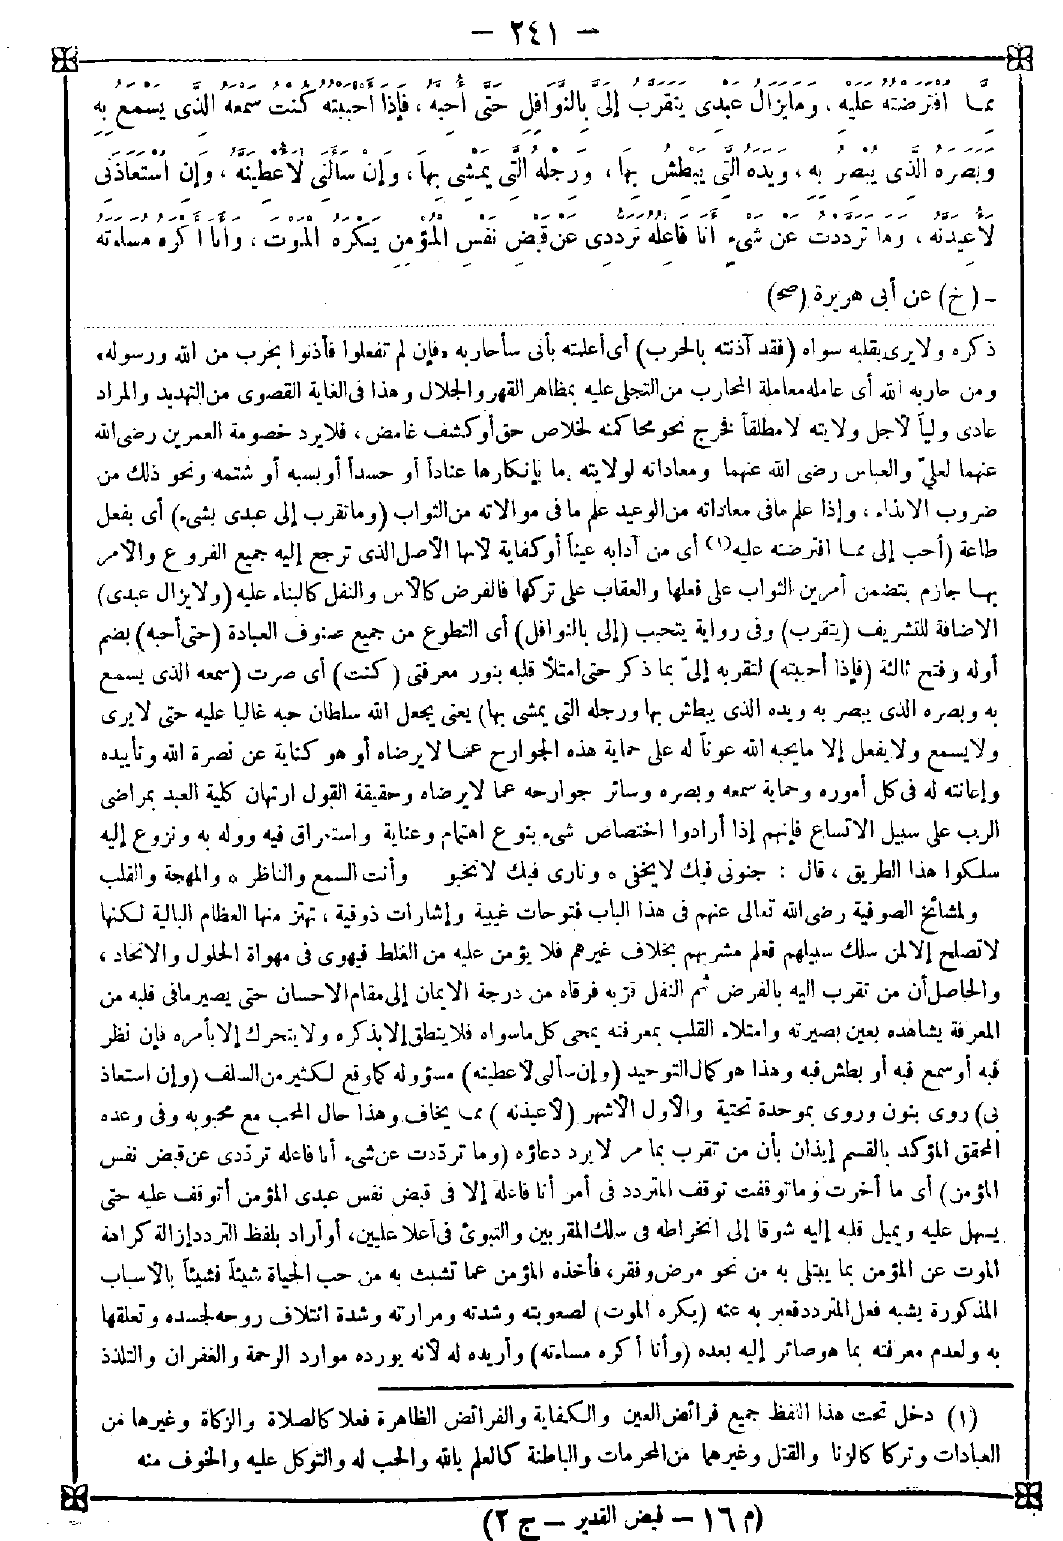 — ٢٤١ —
مِمَّا افْتَرَضْتُهُ عَلَيْهِ ، وَمَا يَزَالُ عَبْدِى يَتَقَرَّبُ إِلَىَّ بِالنَّوَافِلِ حَتَّى أُحِبَّهُ ، فَإِذَا أَحْبَبْتُهُ كُنْتُ سَمْعَهُ الَّذِى يَسْمَعُ بِهِ
وَبَصَرَهُ الَّذِى يُبْصِرُ بِهِ ، وَيَدَهُ الَّتِى يَبْطِشُ بِهَا ، وَرِجْلَهُ الَّتِى يَمْشِى بِهَا ، وَإِنْ سَأَلَنِى لَأُعْطِيَنَّهُ ، وَإِنِ اسْتَعَاذَنِى
لَأُعِيذَنَّهُ ، وَمَا تَرَدَّدْتُ عَنْ شَىْءٍ أَنَا فَاعِلُهُ تَرَدُّدِى عَنْ قَبْضِ نَفْسِ الْمُؤْمِنِ يَكْرَهُ الْمَوْتَ ، وَأَنَا أَكْرَهُ مَسَاءَتَهُ
- (خ) عن أبى هريرة (صح)
ذكره ولا يرى بقلبه سواه (فقد آذنته بالحرب) أى أعلمته بأنى سأحاربه «فإن لم تفعلوا فأذنوا بحرب من الله ورسوله»
ومن حاربه الله أى عامله معاملة المحارب من التجلى عليه بمظاهر القهر والجلال وهذا فى الغاية القصوى من التهديد والمراد
عادى ولياً لأجل ولايته لا مطلقاً فخرج نحو محاكمته لخلاص حق أو كشف غامض ، فلا يرد خصومة العمرين رضى الله
عنهما لعلىّ والعباس رضى الله عنهما ومعاداته لولايته إما بإنكارها عناداً أو حسداً أو بسبه أو شتمه ونحو ذلك من
ضروب الايذاء ، وإذا علم ما فى معاداته من الوعيد علم ما فى موالاته من الثواب (وما تقرب إلى عبدى بشىء) أى بفعل
طاعة (أحب إلى مما افترضته عليه(١) أى من أدايه عيناً أو كفاية لأنها الأصل الذى ترجع إليه جميع الفروع والأمر
بها جازم يتضمن أمرين الثواب على فعلها والعقاب على تركها فالفرض كالأس والنفل كالبناء عليه (ولا يزال عبدى)
الاضافة للتشريف (يتقرب) وفى رواية يتحبب (إلى بالنوافل) أى التطوع من جميع صنوف العبادة (حتى أحبه) بضم
أوله وفتح ثالثة (فإذا أحببته) لتقربه إلىّ بما ذكر حتى امتلأ قلبه بنور معرفتى (كنت) أى صرت (سمعه الذى يسمع
به وبصره الذى يبصر به ويده الذى يبطش بها ورجله التى يمشى بها) يعنى يجعل الله سلطان حبه غالبا عليه حتى لا يرى
ولا يسمع ولا يفعل إلا ما يحبه الله عوناً له على حماية هذه الجوارح عما لا يرضاه أو هو كناية عن نصرة الله وتأييده
وإعانته له فى كل أموره وحماية سمعه وبصره وسائر جوارحه عما لا يرضاه وحقيقة القول ارتهان كلية العبد بمراضى
الرب على سبيل الاتساع فإنهم إذا أرادوا اختصاص شىء بنوع اهتمام وعناية واستغراق فيه ووله به ونزوع إليه
سلكوا هذا الطريق ، قال : جنونى فيك لا يخفى ه ونارى فيك لا تخبو وأنت السمع والناظر ه والمهجة والقلب
ولمشائخ الصوفية رضى الله تعالى عنهم فى هذا الباب فتوحات غيبية وإشارات ذوقية ، تهتز منها العظام البالية لكنها
لا تصلح إلا لمن سلك سبيلهم فعلم مشربهم بخلاف غيرهم فلا يؤمن عليه من الغلط فيهوى فى مهواة الحلول والاتحاد ،
والحاصل أن من تقرب اليه بالفرض ثم النفل قرّبه فرقاه من درجة الايمان إلى مقام الاحسان حتى يصير ما فى قلبه من
المعرفة يشاهده بعين بصيرته وامتلاء القلب بمعرفته يمحى كل ما سواه فلا ينطق إلا بذكره ولا يتحرك إلا بأمره فإن نظر
فبه أو سمع فبه أو بطش فبه وهذا هو كمال التوحيد (وإن سألنى لأعطينه) مسؤوله كما وقع لكثير من السلف (وإن استعاذ
بى) روى بنون وروى بموحدة تحتية والأول الأشهر (لأعيذنه) مما يخاف وهذا حال المحب مع محبوبه وفى وعده
المحقق المؤكد بالقسم إيذان بأن من تقرب بما مر لا يرد دعاؤه (وما تردّدت عن شىء أنا فاعله تردّدى عن قبض نفس
المؤمن) أى ما أخرت وما توقفت توقف المتردد فى أمر أنا فاعله إلا فى قبض نفس عبدى المؤمن أتوقف عليه حتى
يسهل عليه ويميل قلبه إليه شوقا إلى انخراطه فى سلك المقربين والتبوئ فى أعلا عليين، أو أراد بلفظ التردد إزالة كراهة
الموت عن المؤمن بما يبتلى به من نحو مرض وفقر، فأخذه المؤمن عما تشبث به من حب الحياة شيئاً فشيئاً بالأسباب
المذكورة يشبه فعل المتردد فعبر به عنه (يكره الموت) لصعوبته وشدته ومرارته وشدة ائتلاف روحه لجسده وتعلقها
به ولعدم معرفته بما هو صائر إليه بعده (وأنا أكره مساءته) وأريده له لأنه يورده موارد الرحمة والغفران والتلذذ
(١) دخل تحت هذا اللفظ جميع فرائض العين والكفاية والفرائض الظاهرة فعلا كالصلاة والزكاة وغيرها من
العبادات وتركا كالزنا والقتل وغيرهما من المحرمات والباطنة كالعلم بالله والحب له والتوكل عليه والخوف منه
(م ١٦ — فيض القدير — ج ٢)